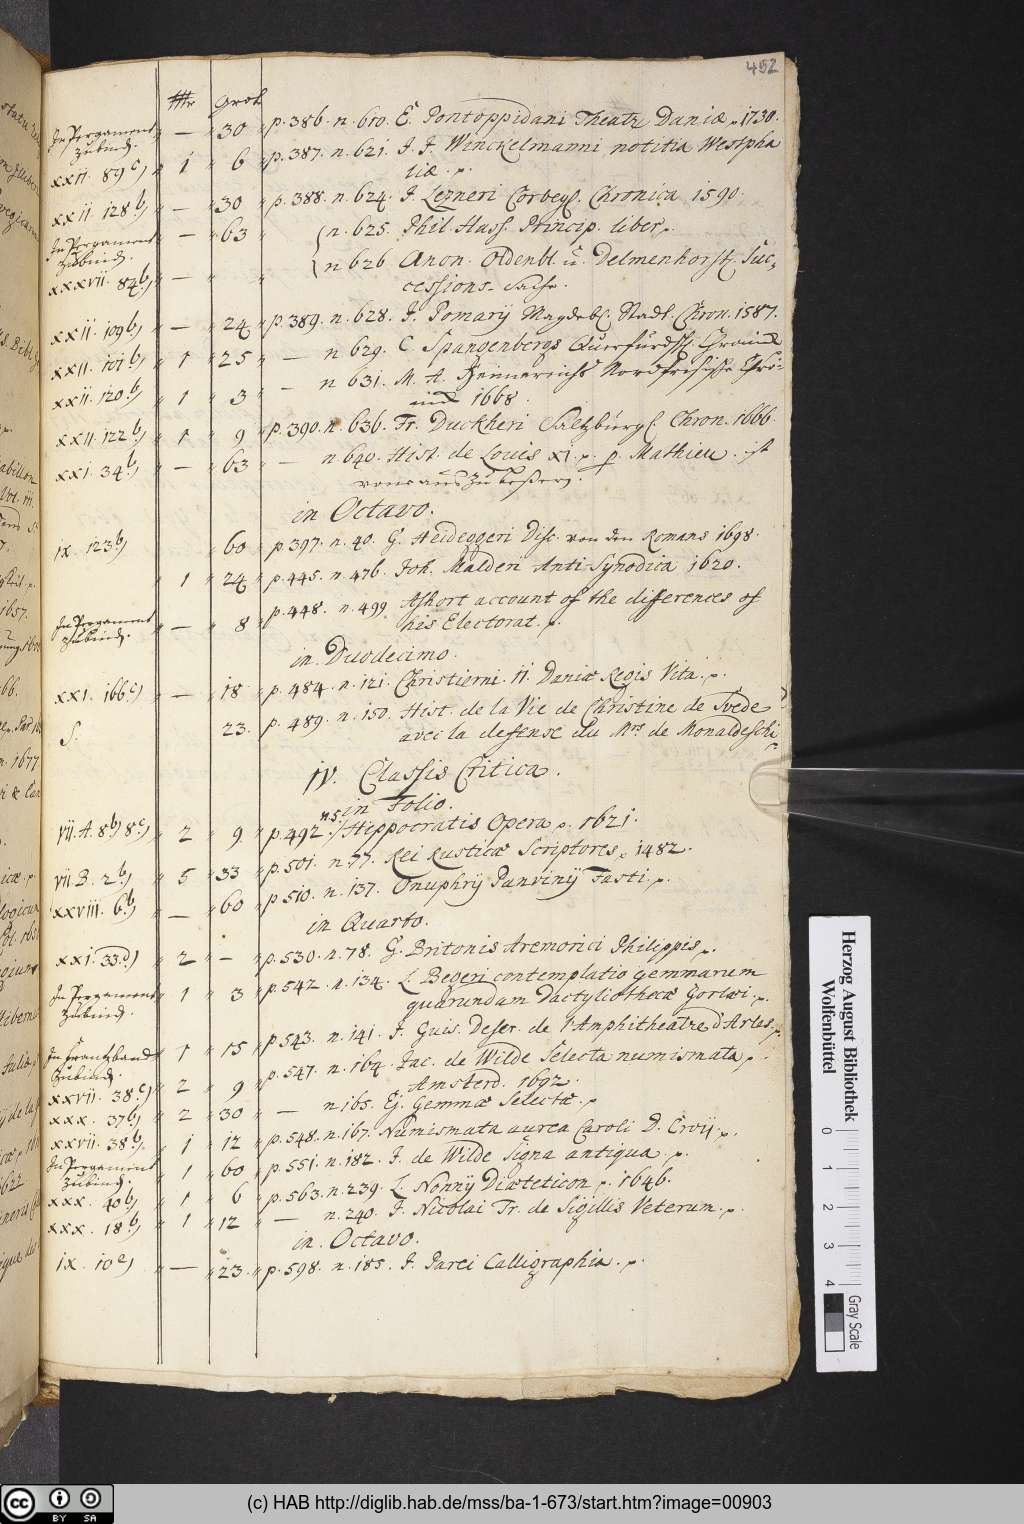 452
Thlr Grosch
In Pergament — 30 p. 386. n. 610. E. Pontoppidani Theatr. Daniæ. 1730.
Zubind.
XXII. 89 c) 1 6 p. 387. n. 621. J. J. Winckelmanni notitia Westpha
liæ. p.
XXII. 128 b) — 30 p. 388. n. 624. J. Lezneri Corbeys. Chronica 1590.
In Pergament — 63 n. 625. Phil. Hass. Princip. liber.
Zubind.
XXXVII. 84 b) — n 626 Anon. Oldenbl. u. Delmenhorst. Suc,
cessions- Sache.
XXII. 109 b) — 24 p. 389. n. 628. J. Pomarij Magdeb. Stadt. Chron. 1587.
XXII. 101 b) 1 25 — n 629. C. Spangenbergs Querfurdts. Chronica
XXII. 120 b) 1 3 — n 631. M. A. Heimreichs Nordfresische Chro-
nica 1668.
XXII. 122 b) 1 9 p. 390. n. 636. Fr. Duckheri Saltzburg. Chron. 1666.
XXI. 34 b) — 63 — n 640. Hist. de Louis XI. p. p. Mathieu. ist
voraus zu beßern.
in Octavo.
IX. 123 b) 60 p. 397. n. 40. G. Heideggeri Disc. von den Romans 1698.
1 24 p. 445. n. 476. Joh. Malderi Anti-Synodica 1620.
In Pergament — 8 p. 448. n. 499. A short account of the differences of
Zubind. his Electorat. p.
in Duodecimo.
XXI. 166 c) — 18 p. 484. n. 121. Christierni. II. Daniæ Regis Vita. p.
S. 23. p. 489. n. 150. Hist. de la Vie de Christine de Svede
avec la defense du Mrs de Monaldeschi
IV. Classis Critica.
in Folio.
VII. A. 8 b) 8 c) 2 9. p. 492. n. 5. Hippocratis Opera p. 1621.
VII B. 2 b) 5 33 p. 501. n. 77. Rei Rusticæ Scriptores, 1482.
XXVIII. 6 b) — 60 p. 510. n. 137. Onuphrij Panvinij Fasti. p.
in Quarto.
XXI. 33 d) 2 — p. 530. n. 78. G. Britonis Aremorici Philippis.
In Pergament 1 3 p. 542. n. 134. L. Begeri contemplatio gemmarum
Zubind. quarundam Dactyliothecæ Gorlæi. p.
In Frantzband 1 15 p. 543. n. 141. J. Guis. Descr. de l'Amphitheatre d'Arles. p.
Zubind.
XXVII. 38 c) 2 9 p. 547. n. 164. Jac. de Wilde Selecta numismata, p.
Amsterd. 1692.
XXX. 37 b) 2 30 — n 165. Ej. Gemmæ Selectæ. p
XXVII. 38 b) 1 12 p. 548. n. 167. Numismata aurea Caroli D. Croij. p.
In Pergament 1 60 p. 551. n. 182. J. de Wilde Signa antiqua. p.
Zubind.
XXX. 40 b) 1 6 p. 563. n. 239. L. Nonnij Diæteticon p. 1646.
XXX. 18 b) 1 12 — n. 240. J. Nicolai Tr. de Sigillis Veterum. p.
in. Octavo.
IX. 10 e) — 23. p. 598. n. 185. J. Parei Calligraphia. p.
Herzog August Bibliothek
Wolfenbüttel
0 1 2 3 4
Gray Scale
(c) HAB http://diglib.hab.de/mss/ba-1-673/start.htm?image=00903
cc BY SA